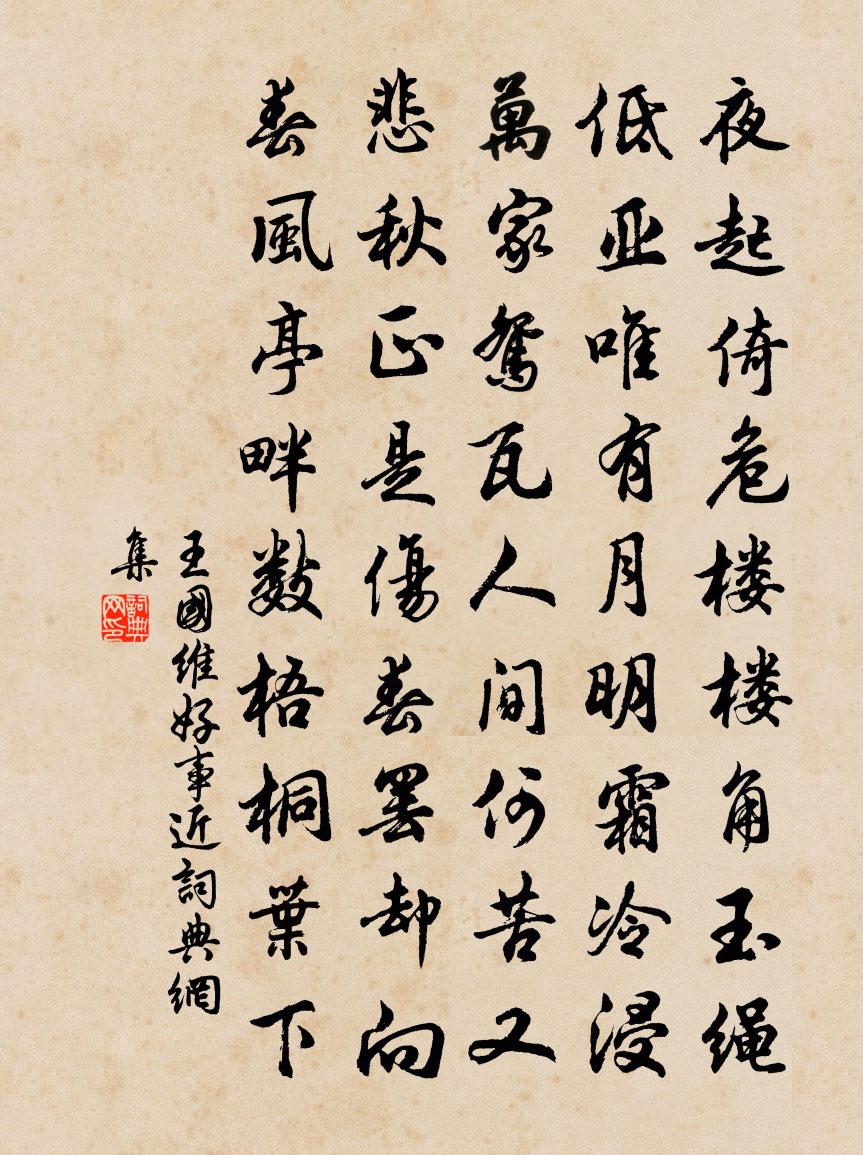 夜起倚危楼楼角玉绳
低亚唯有月明霜冷浸
萬家鸳瓦人间何苦又
悲秋正是傷春罢却向
春風亭畔数梧桐葉下
王國維好事近詞典網
集
詞典网印